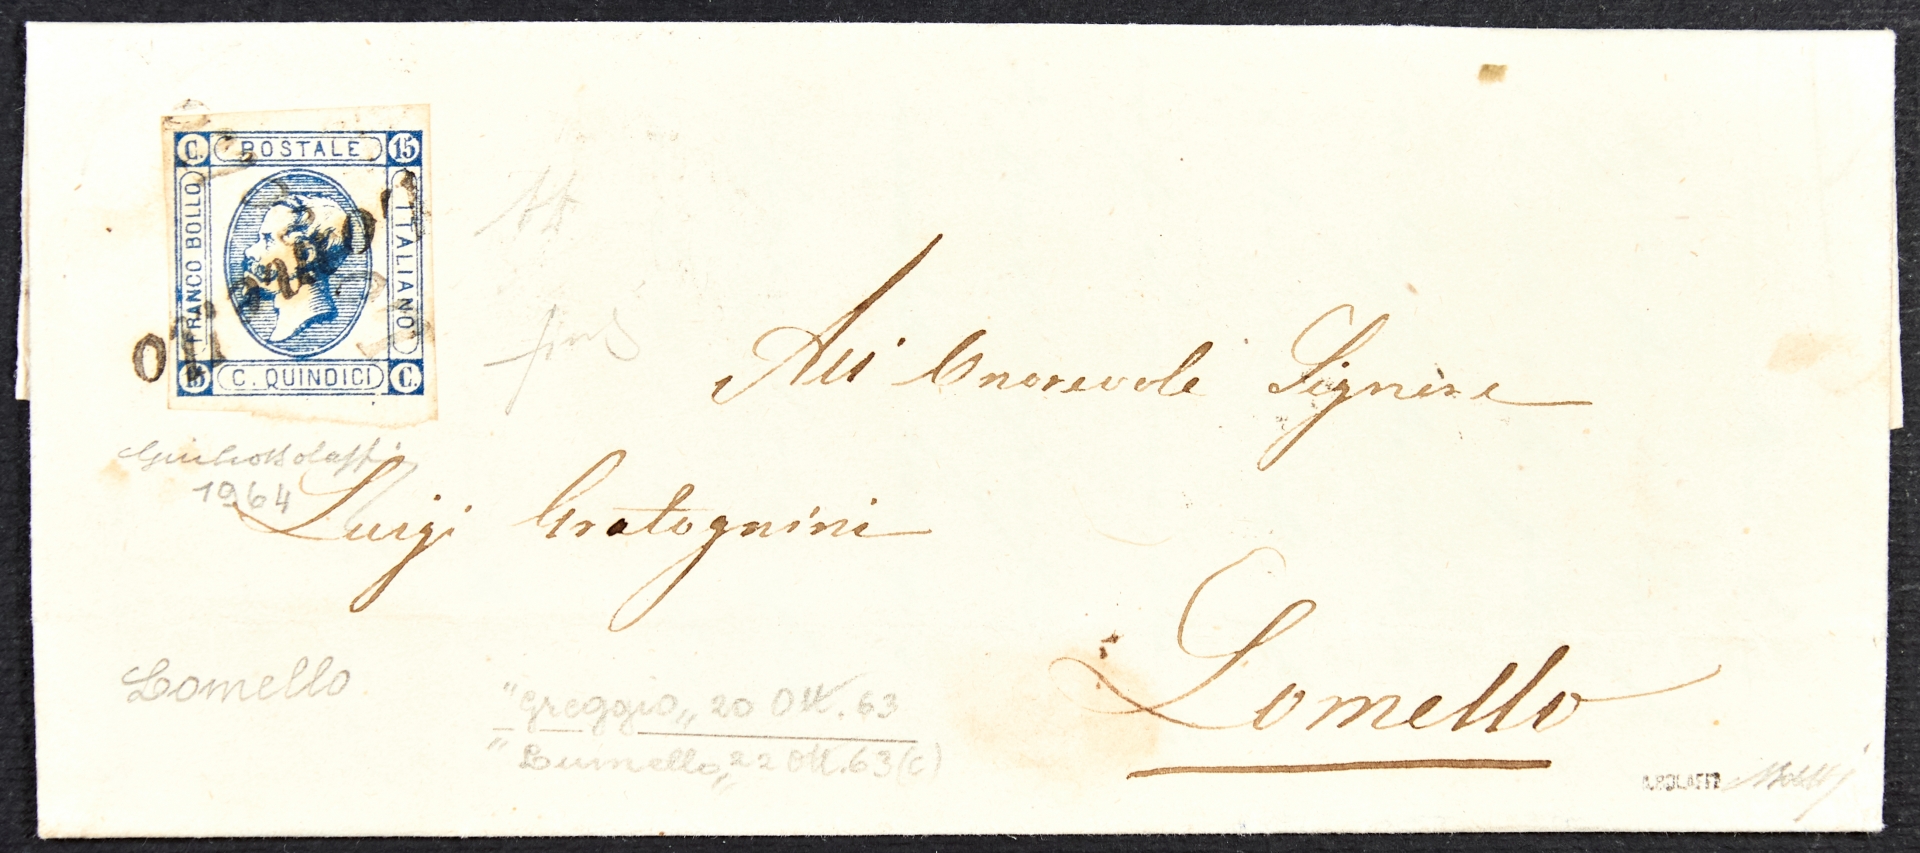 C. POSTALE 15
FRANCO BOLLO
ITALIANO
15 C. QUINDICI C.
All' Onorevole Signore
Giulio Bolaffi
1964
Luigi Gratognini
Lomello
Lomello
"Greggio" 20 Ott. 63
"Lumello" 22 Ott. 63 (c)
A. BOLAFFI